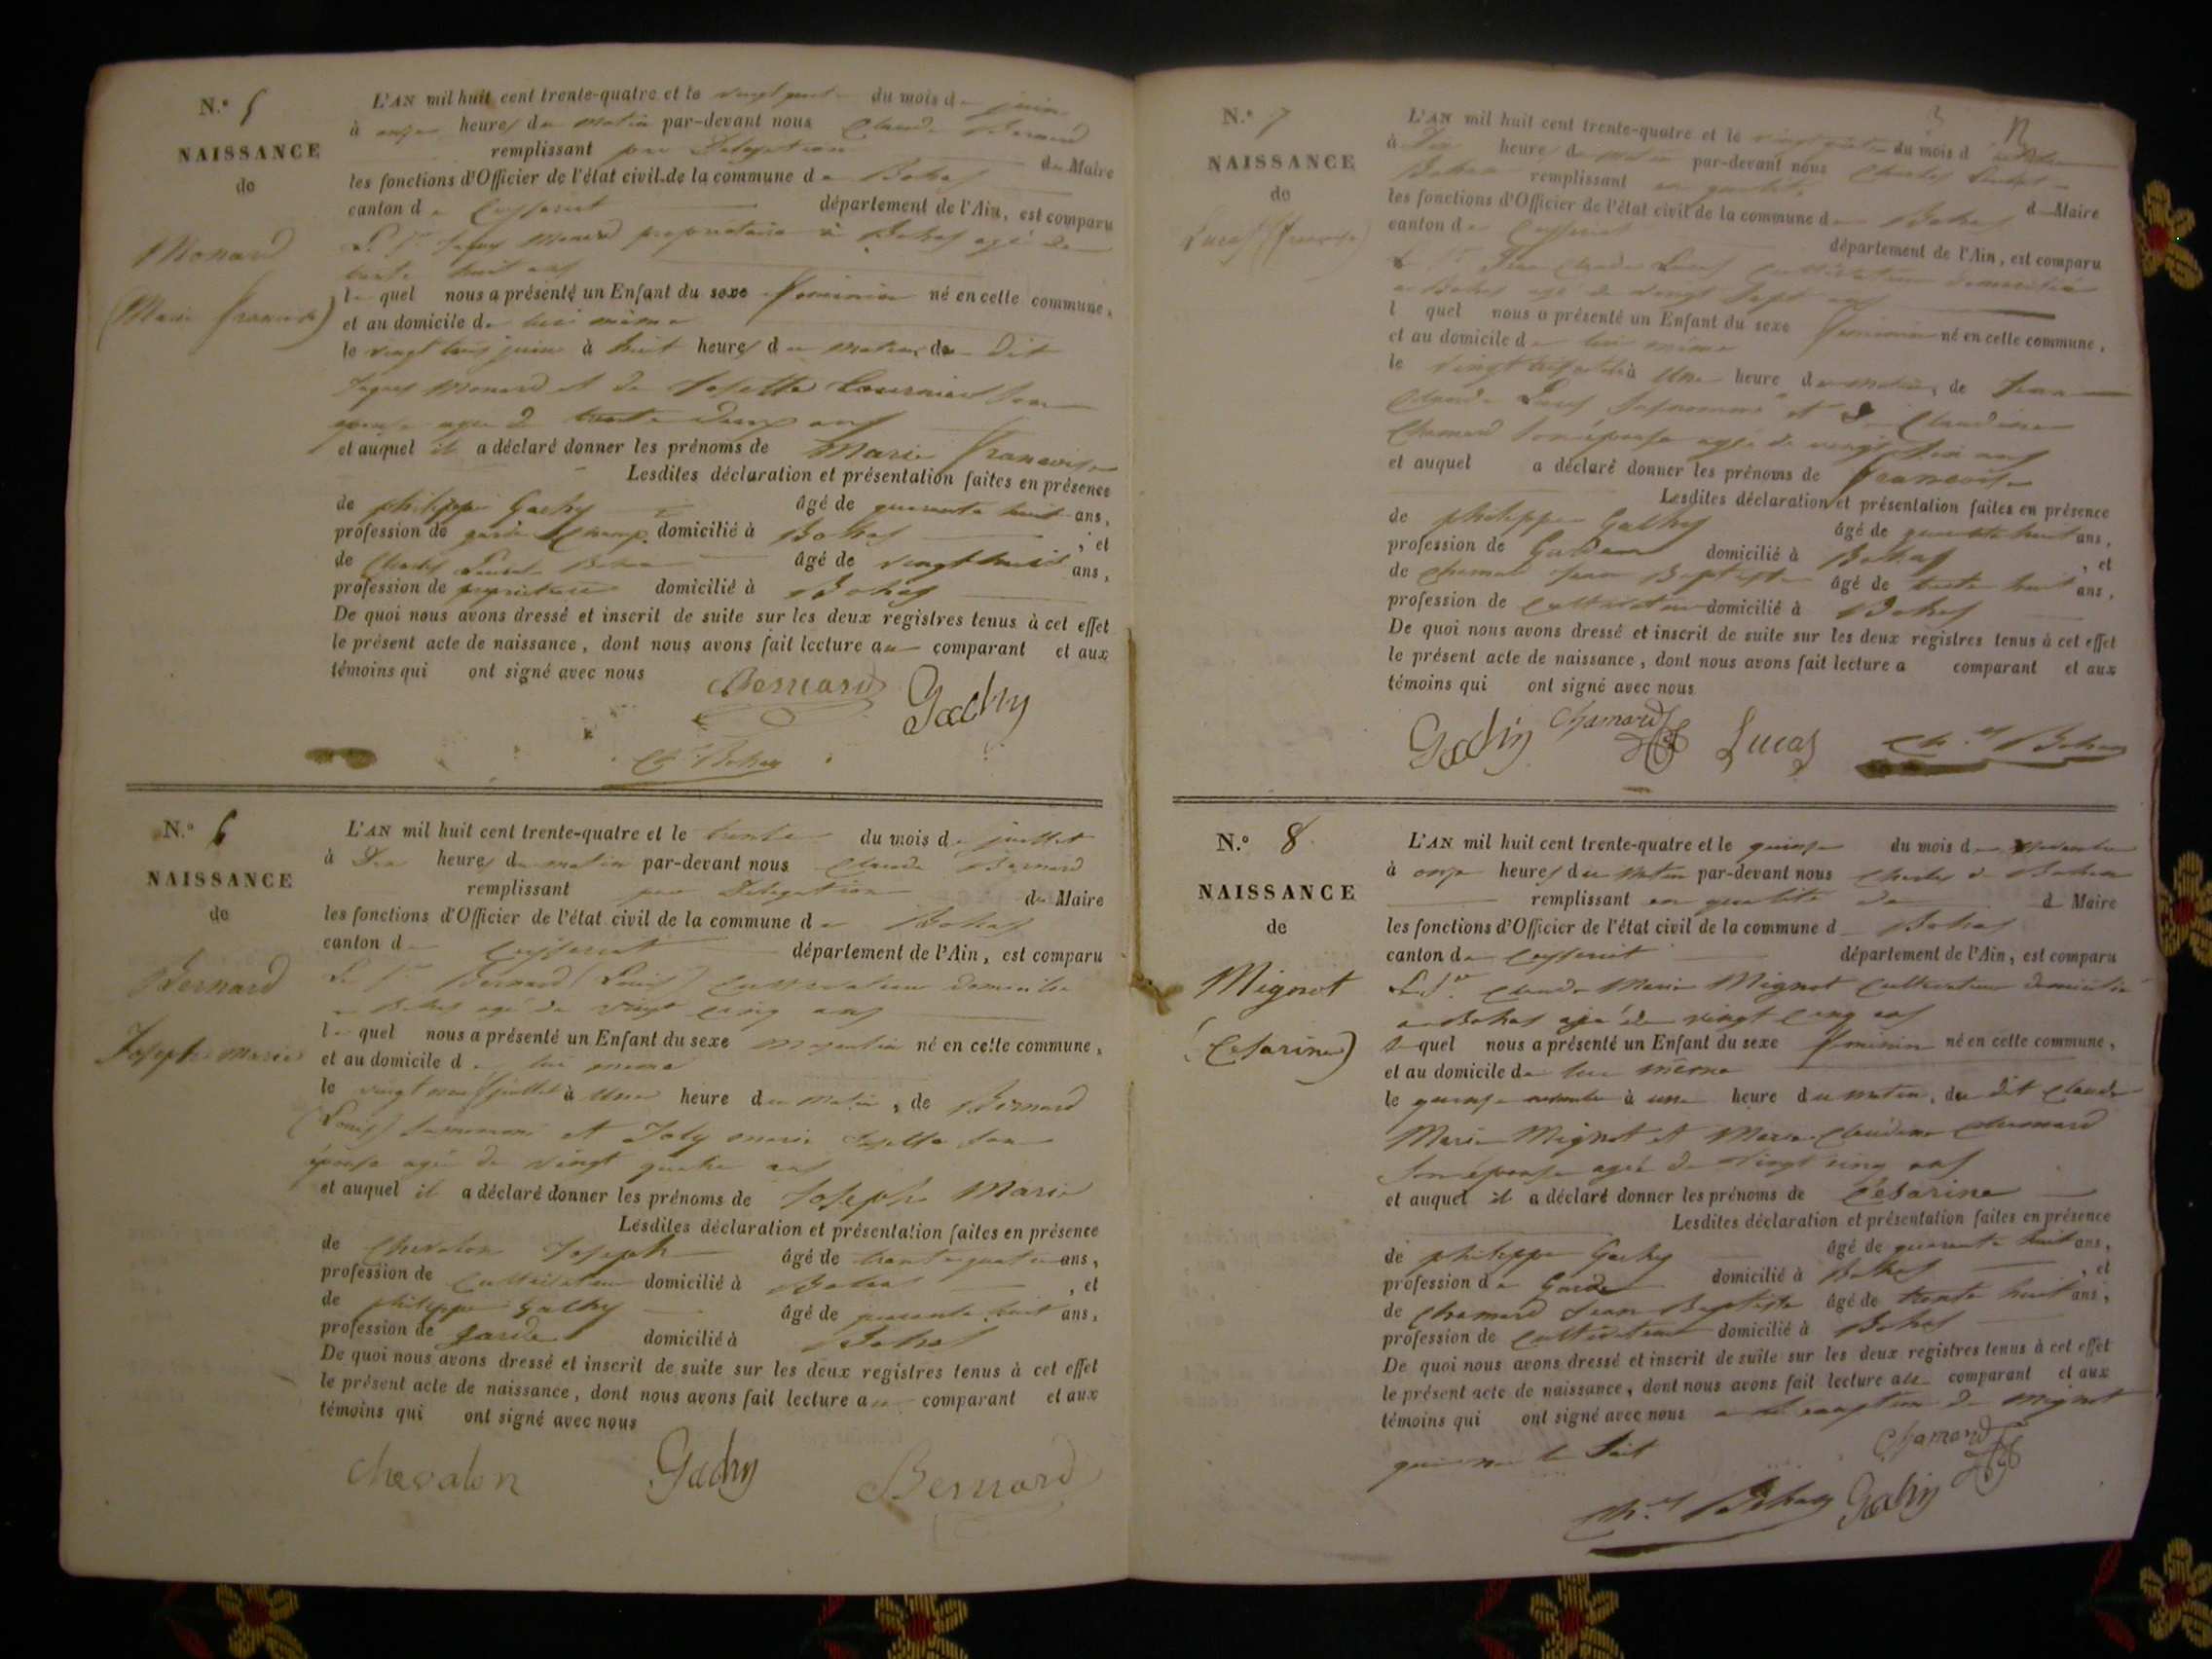 N.° 5
NAISSANCE
de
Monard
(Marie françoise)
L'AN mil huit cent trente-quatre et le vingt quatre du mois de juin
à onze heures du matin par-devant nous Claude Bernard
remplissant par Délégation du Maire
les fonctions d'Officier de l'état civil de la commune de Bohas
canton de Ceyzeriat département de l'Ain, est comparu
Le Sr. Monard propriétaire à Bohas agé de
trente huit ans
le quel nous a présenté un Enfant du sexe feminin né en celle commune,
et au domicile de lui même
le vingt trois juin à huit heures du matin, du Dit
Monard et de Josette son
épouse agée de trente deux ans
et auquel il a déclaré donner les prénoms de Marie françoise
Lesdites déclaration et présentation faites en présence
de philippe Gachy âgé de quarante huit ans,
profession de garde champ. domicilié à Bohas , et
de Charles Bohas âgé de vingt huit ans,
profession de propriétaire domicilié à Bohas
De quoi nous avons dressé et inscrit de suite sur les deux registres tenus à cet effet
le présent acte de naissance, dont nous avons fait lecture au comparant et aux
témoins qui ont signé avec nous
Bernard Gachy
Ch. Bohas
N.° 6
NAISSANCE
de
Bernard
Joseph marie
L'AN mil huit cent trente-quatre et le trente du mois de juillet
à Dix heures du matin par-devant nous Claude Bernard
remplissant par Délégation du Maire
les fonctions d'Officier de l'état civil de la commune de Bohas
canton de Ceyzeriat département de l'Ain, est comparu
Le Sr. Bernard (Louis) Cultivateur domicilié
à Bohas agé de vingt cinq ans
le quel nous a présenté un Enfant du sexe masculin né en celle commune,
et au domicile de lui même
le vingt neuf juillet à Une heure du matin, de Bernard
(Louis) surnommé et Joly marie Josette son
épouse agée de vingt quatre ans
et auquel il a déclaré donner les prénoms de Joseph Marie
Lesdites déclaration et présentation faites en présence
de Chevalon Joseph âgé de trente quatre ans,
profession de Cultivateur domicilié à Bohas , et
de philippe Gachy âgé de quarante huit ans,
profession de garde domicilié à Bohas
De quoi nous avons dressé et inscrit de suite sur les deux registres tenus à cet effet
le présent acte de naissance, dont nous avons fait lecture au comparant et aux
témoins qui ont signé avec nous
chevalon Gachy Bernard
N.° 7
NAISSANCE
de
Lucas (françoise)
L'AN mil huit cent trente-quatre et le vingt quatre du mois d'octobre
à Dix heures du matin par-devant nous Charles
Bohas remplissant en qualité d Maire
les fonctions d'Officier de l'état civil de la commune de Bohas
canton de Ceyzeriat département de l'Ain, est comparu
Le Sr. Jean Claude Lucas Cultivateur domicilié
à Bohas agé de vingt sept ans
l quel nous a présenté un Enfant du sexe feminin né en celle commune,
et au domicile de lui même
le vingt à Une heure du matin, de Jean
Claude Lucas surnommé et de Claudine
Chamard son épouse agée de vingt six ans
et auquel a déclaré donner les prénoms de françoise
Lesdites déclaration et présentation faites en présence
de philippe Gachy âgé de quarante huit ans,
profession de Garde domicilié à Bohas , et
de chamard Jean Baptiste âgé de trente huit ans,
profession de Cultivateur domicilié à Bohas
De quoi nous avons dressé et inscrit de suite sur les deux registres tenus à cet effet
le présent acte de naissance, dont nous avons fait lecture a comparant et aux
témoins qui ont signé avec nous
Gachy Chamard Lucas Ch.es Bohas
N.° 8
NAISSANCE
de
Mignot
(Césarine)
L'AN mil huit cent trente-quatre et le quinze du mois de novembre
à onze heures du matin par-devant nous Charles de Bohas
remplissant en qualité de d Maire
les fonctions d'Officier de l'état civil de la commune d Bohas
canton de Ceyzeriat département de l'Ain, est comparu
Le Sr. Claude Marie Mignot Cultivateur domicilié
à Bohas agé de vingt cinq ans
le quel nous a présenté un Enfant du sexe feminin né en celle commune,
et au domicile de lui même
le quinze novembre à une heure du matin, du dit Claude
Marie Mignot et Marie Claudine chamard
son épouse agée de vingt cinq ans
et auquel il a déclaré donner les prénoms de Césarine
Lesdites déclaration et présentation faites en présence
de philippe Gachy âgé de quarante huit ans,
profession de Garde domicilié à Bohas , et
de Chamard Jean Baptiste âgé de trente huit ans,
profession de cultivateur domicilié à Bohas
De quoi nous avons dressé et inscrit de suite sur les deux registres tenus à cet effet
le présent acte de naissance, dont nous avons fait lecture au comparant et aux
témoins qui ont signé avec nous exception de Mignot
qui ne le Sait
Chamard
Ch.es Bohas Gachy